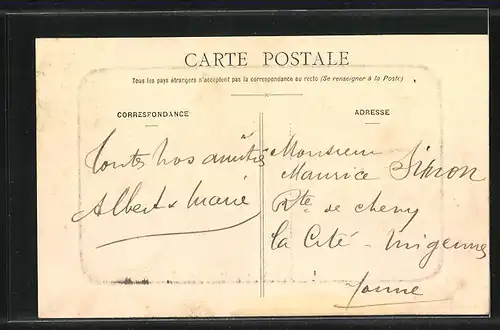 CARTE POSTALE
Tous les pays étrangers n'acceptent pas la correspondance au recto (Se renseigner à la Poste)
CORRESPONDANCE
Toutes nos amitiés
Albert & Marie
ADRESSE
Monsieur
Maurice Simon
Rte de Cheny
La Cité - Migennes
Yonne